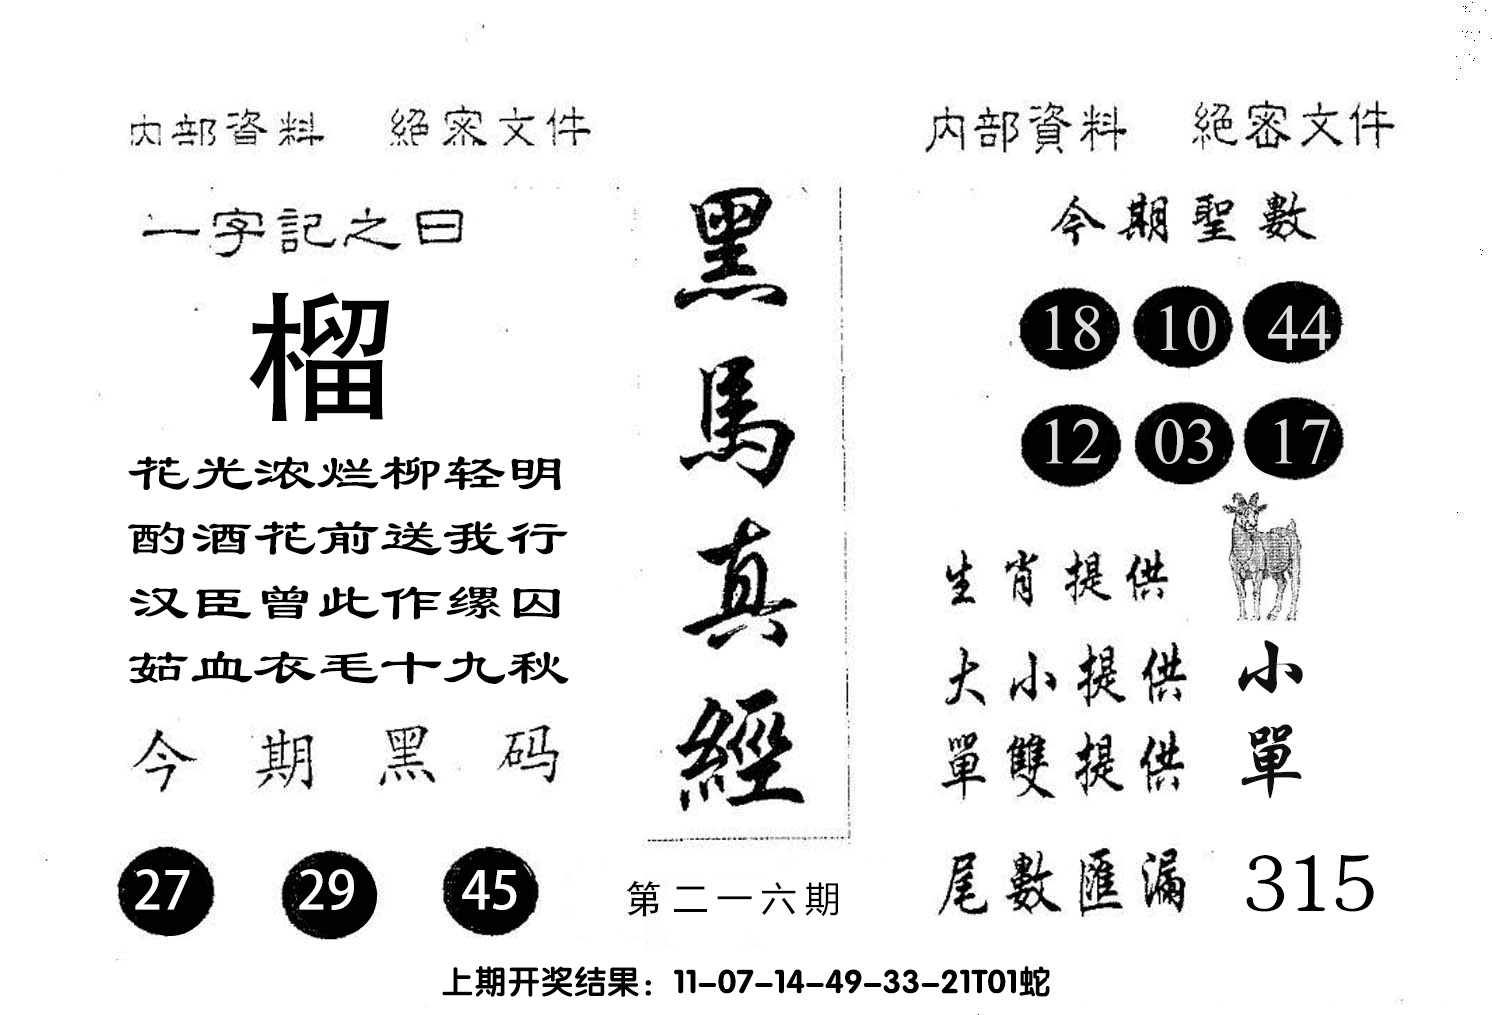 内部資料 絕密文件
一字記之曰
榴
花光浓烂柳轻明
酌酒花前送我行
汉臣曾此作缧囚
茹血衣毛十九秋
今期黑码
27 29 45
黑馬真經
第二一六期
内部資料 絕密文件
今期聖數
18 10 44
12 03 17
生肖提供
大小提供 小
單雙提供 單
尾數匯漏 315
上期开奖结果：11-07-14-49-33-21T01蛇